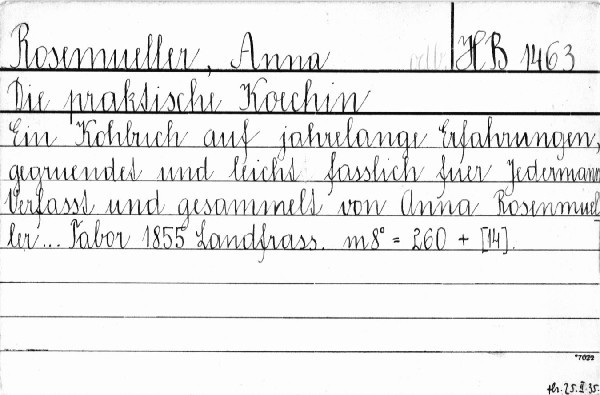 Rosemueller, Anna HB 1463
Die praktische Koechin
Ein Kohbuch auf jahrelange Erfahrungen,
gegruendet und leicht fasslich fuer Jedermann
Verfasst und gesammelt von Anna Rosenmuel-
ler... Tabor 1855 Landfrass. m8° = 260 + [14].
*7022